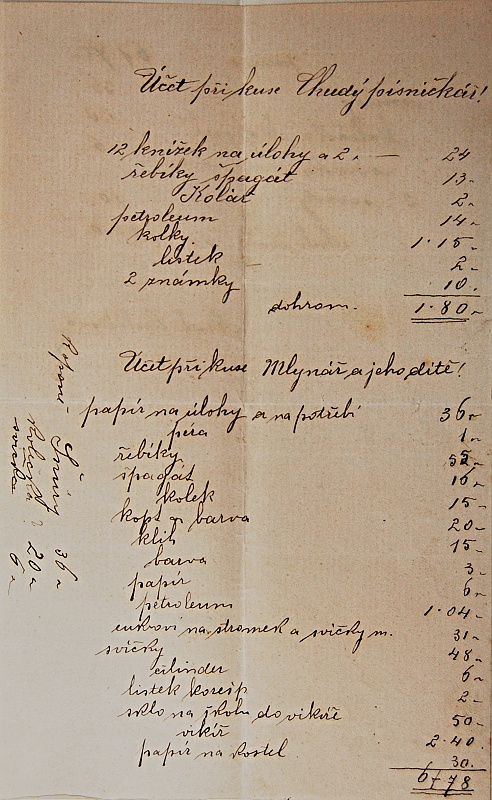 Účet při kuse Chudý písničkář!
12 knížek na úlohy a 2. — 24
řebíky špagát 13.
Kolář 2.
petroleum 14.
kolky 1.15.
lístek 2.
2 známky 10.
dohrom. 1.80.
Účet při kuse Mlynář a jeho dítě!
papír na úlohy a na potřebí 36.
péra 1.
řebíky
špagát 16.
kolek 15.
kopt a barva 20.
klih 15.
barva 3.
papír 6.
petroleum 1.04.
cukroví na stromek a svíčky m. 31.
svíčky 48.
cilinder 6.
lístek koresp 2.
sklo na školu do vikýře 50.
vikýř 2.40.
papír na kostel 30.
6.78
36.
20.
6.